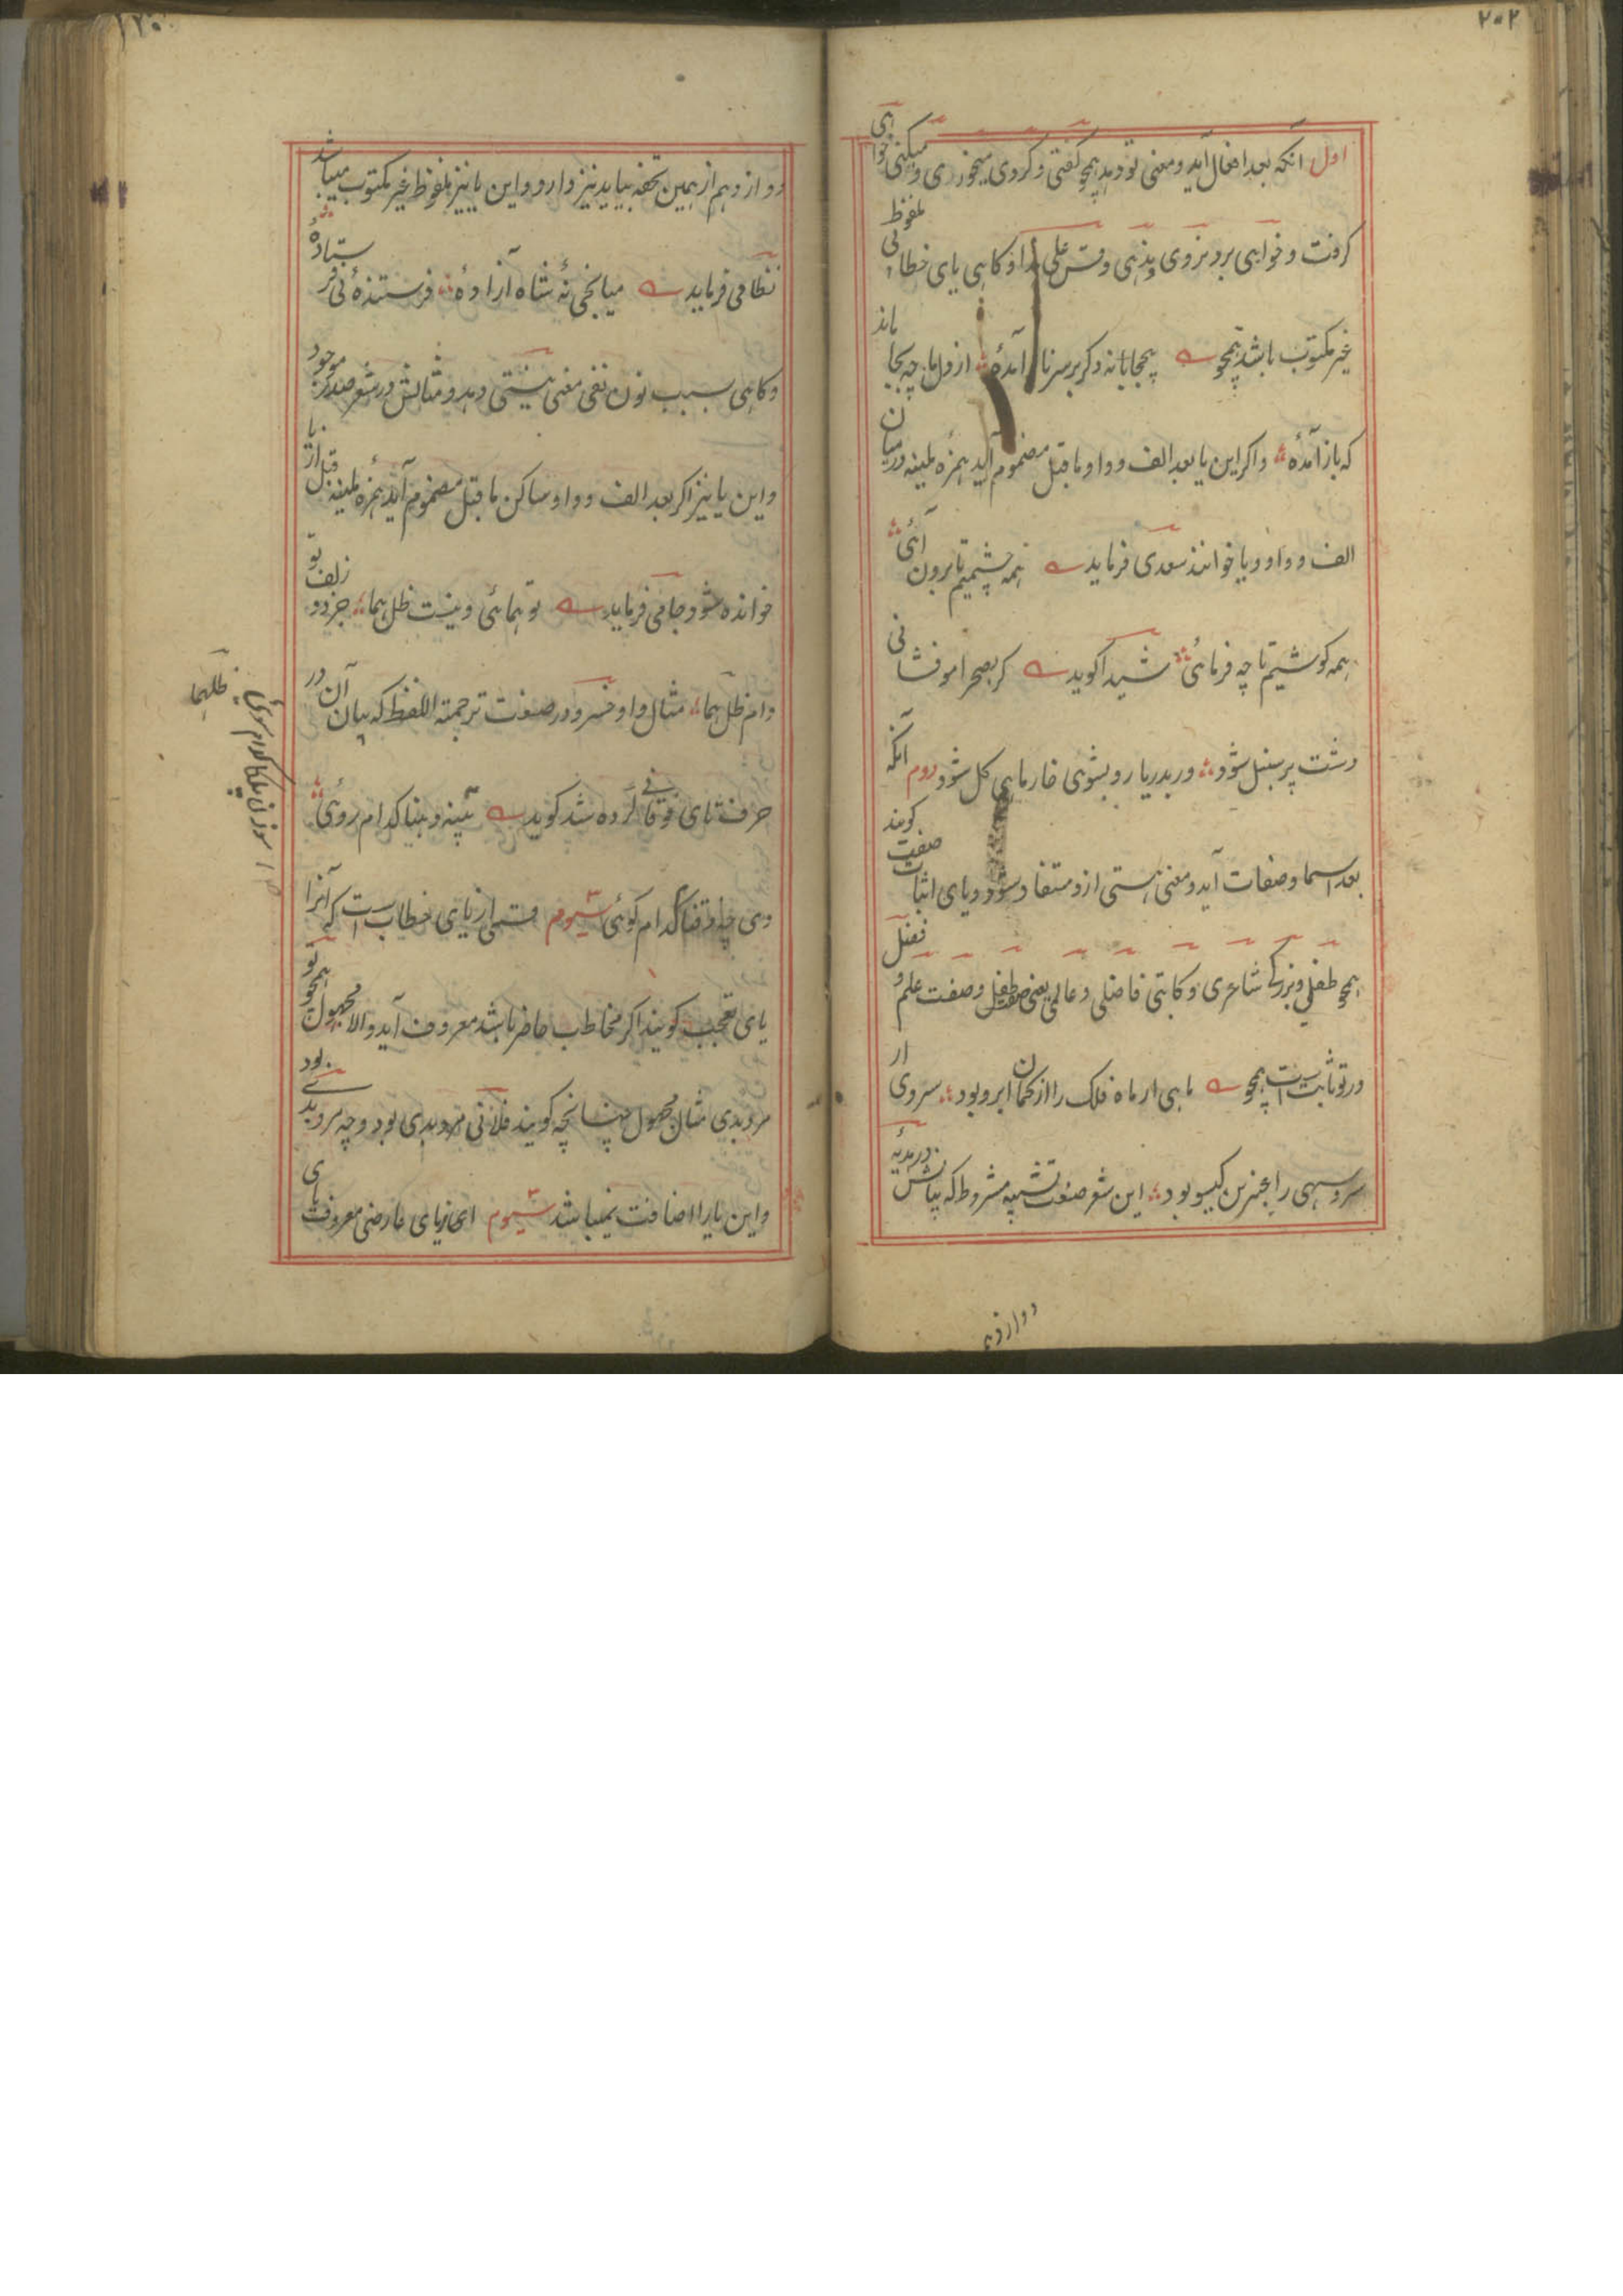 ۲۰۲
اول آنکه بعد افعال آید و معنی تو دهد همچو گفتی و کردی میخوری و میکنی خواهی
گرفت و خواهی برد بزوی و بدهی وقس علی هذا و کاهی یای خطابی ملفوظ
غیر مکتوب باشد همچو بیجابانه دکر بر سر ناز آمدهٔ از دل ما چه بجا ماند
که باز آمدهٔ واکر این یا بعد الف و واو ماقبل مضموم آید همزه ملینه درمیان
الف و واو و یا خوانند سعدی فرماید همه چشمیم تا برون آئی
همه کوشیم تا چه فرمائی شیدا کوید کر بصحرا مو فشانی
دشت پر سنبل شود ور بدریا رو بشوی خار ماهی کل شود دوم آنکه
بعد اسما و صفات آید و معنی هستی ازو مستفاد شود و یای اثبات صفت کویند
همچو طفلی و بزرکی شاعری و کاتبی فاضلی و عالمی یعنی صفت طفل و صفت علم و فضل
در تو ثابت است همچو ماهی ار ماه فلک را از کمان ابرو بود سروی ار
سرو سهی را عنبرین کیسو بود این شعر صنعت تشبیه مشروط که بیانش در مدیهٔ
دوازدهم
دوازدهم از همین تحفه بیاید نیز دارد و این یا نیز ملفوظ غیر مکتوب میباشد
نظامی فرماید میانجی نهٔ شاه آزادهٔ فرستنده نی فرستادهٔ
وکاهی بسبب نون نفی معنی نیستی دهد و مثالش در شعر صدر موجود
و این یا نیز اکر بعد الف و واو ساکن ماقبل مضموم آید همزه ملینه قبل از یا
خوانده شود جامی فرماید تو همائی و نیست ظل هما جز دو زلف تو
دام ظل هما مثال واو خسرو در صنعت ترجمته اللفظ که بیان آن در
حرف تای فوقانی کرده شد کوید
وی کدام کوئی سیوم قسمی از یای خطاب است که آنرا
یای تعجب کویند اکر مخاطب حاضر باشد معروف آید والا مجهول همچو تو
مرد بدی مثال مجهول چنانچه کویند فلانی مرد بدی بود و چه مرد بدے بود
و این یا را اضافت نمیباشد سیوم از یای عارضی معروف یای
ظلهما